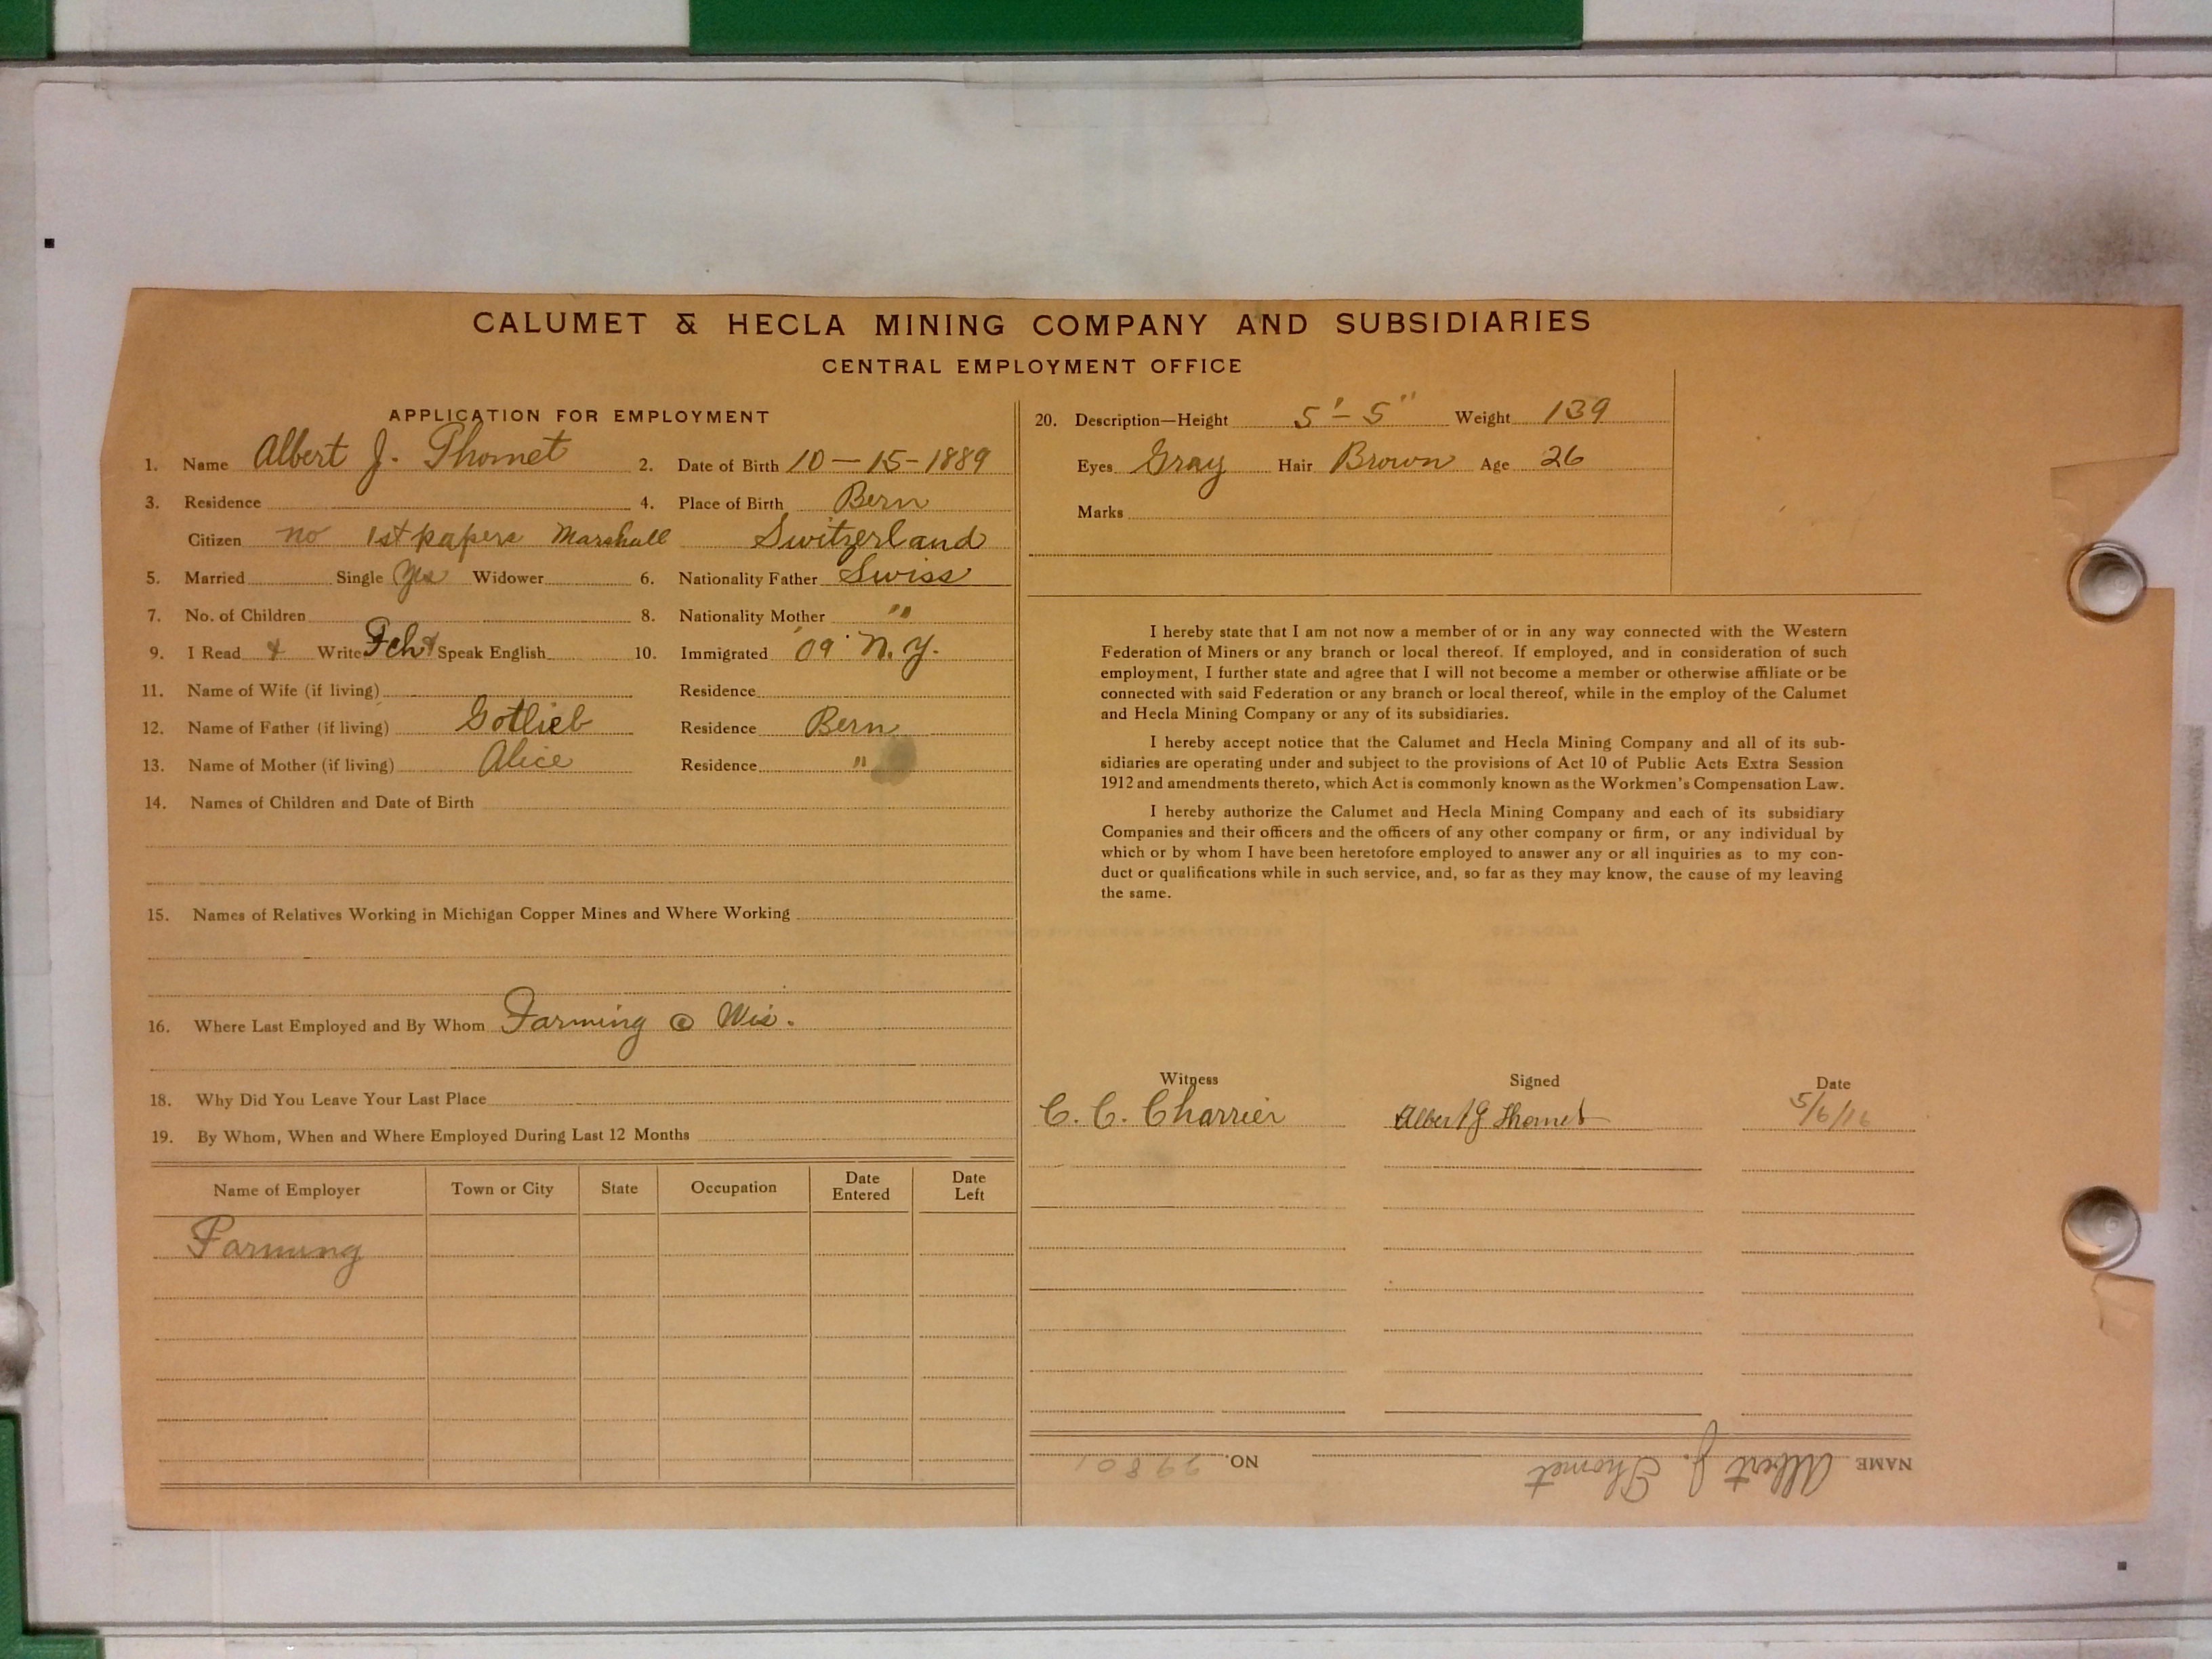 CALUMET & HECLA MINING COMPANY AND SUBSIDIARIES
CENTRAL EMPLOYMENT OFFICE
APPLICATION FOR EMPLOYMENT
1. Name Albert J. Thomet 2. Date of Birth 10-15-1889
3. Residence 4. Place of Birth Bern
Citizen no 1st papers Marshall Switzerland
5. Married Single Yes Widower 6. Nationality Father Swiss
7. No. of Children 8. Nationality Mother "
9. I Read & Write Fch & Speak English 10. Immigrated '09 N.Y.
11. Name of Wife (if living) Residence
12. Name of Father (if living) Gotlieb Residence Bern
13. Name of Mother (if living) Alice Residence "
14. Names of Children and Date of Birth
15. Names of Relatives Working in Michigan Copper Mines and Where Working
16. Where Last Employed and By Whom Farming @ Wis.
18. Why Did You Leave Your Last Place
19. By Whom, When and Where Employed During Last 12 Months
Name of Employer Town or City State Occupation Date Entered Date Left
Farming
20. Description—Height 5'-5" Weight 139
Eyes Gray Hair Brown Age 26
Marks
I hereby state that I am not now a member of or in any way connected with the Western
Federation of Miners or any branch or local thereof. If employed, and in consideration of such
employment, I further state and agree that I will not become a member or otherwise affiliate or be
connected with said Federation or any branch or local thereof, while in the employ of the Calumet
and Hecla Mining Company or any of its subsidiaries.
I hereby accept notice that the Calumet and Hecla Mining Company and all of its sub-
sidiaries are operating under and subject to the provisions of Act 10 of Public Acts Extra Session
1912 and amendments thereto, which Act is commonly known as the Workmen's Compensation Law.
I hereby authorize the Calumet and Hecla Mining Company and each of its subsidiary
Companies and their officers and the officers of any other company or firm, or any individual by
which or by whom I have been heretofore employed to answer any or all inquiries as to my con-
duct or qualifications while in such service, and, so far as they may know, the cause of my leaving
the same.
Witness Signed Date
C. C. Charrier Albert J Thomet 5/6/16
NAME Albert J. Thomet NO. 29801